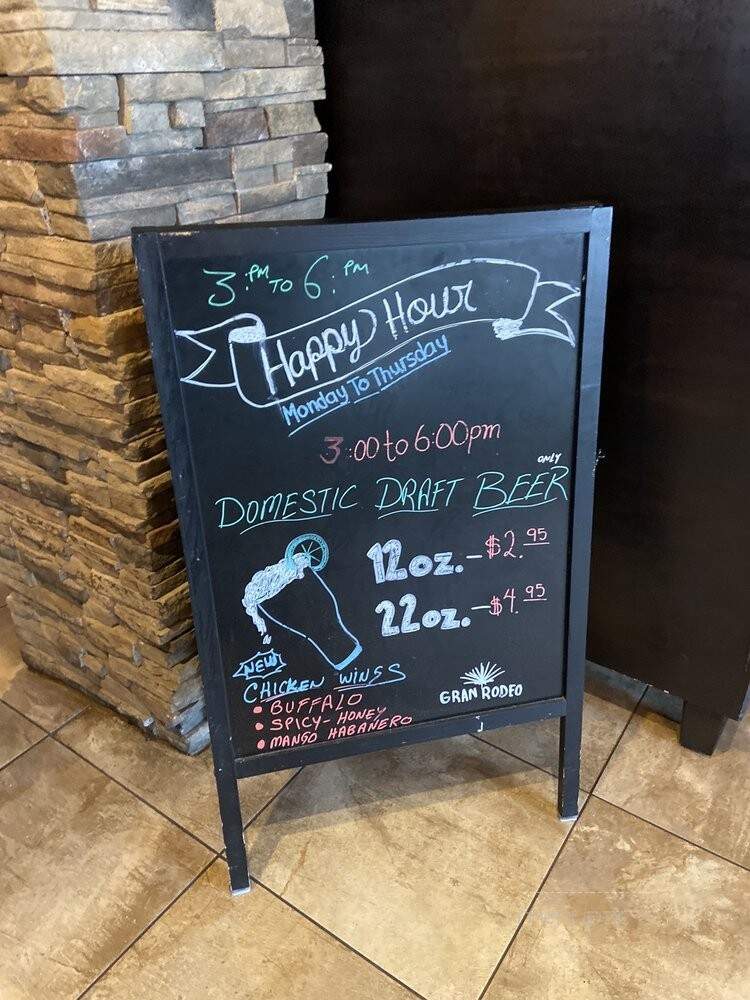 3:PM TO 6:PM
Happy Hour
Monday To Thursday
3:00 to 6:00pm
ONLY
DOMESTIC DRAFT BEER
12oz.-$2.95
22oz.-$4.95
NEW
CHICKEN WINGS
• BUFFALO
• SPICY-HONEY
• MANGO HABANERO
GRAN RODEO